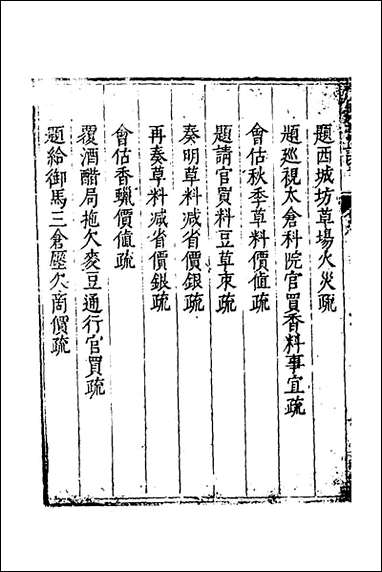 題西城坊草場火災疏
題巡視太倉科院官買香料事宜疏
會估秋季草料價值疏
題請官買料豆草束疏
奏明草料减省價銀疏
再奏草料减省價銀疏
會估香蠟價值疏
覆酒醋局拖欠麥豆通行官買疏
題給御馬三倉壓欠商價疏